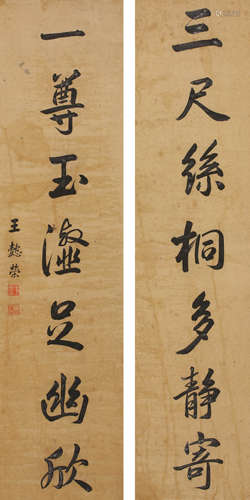 三尺絲桐多靜寄
一尊玉瀣足幽欣
王懿榮